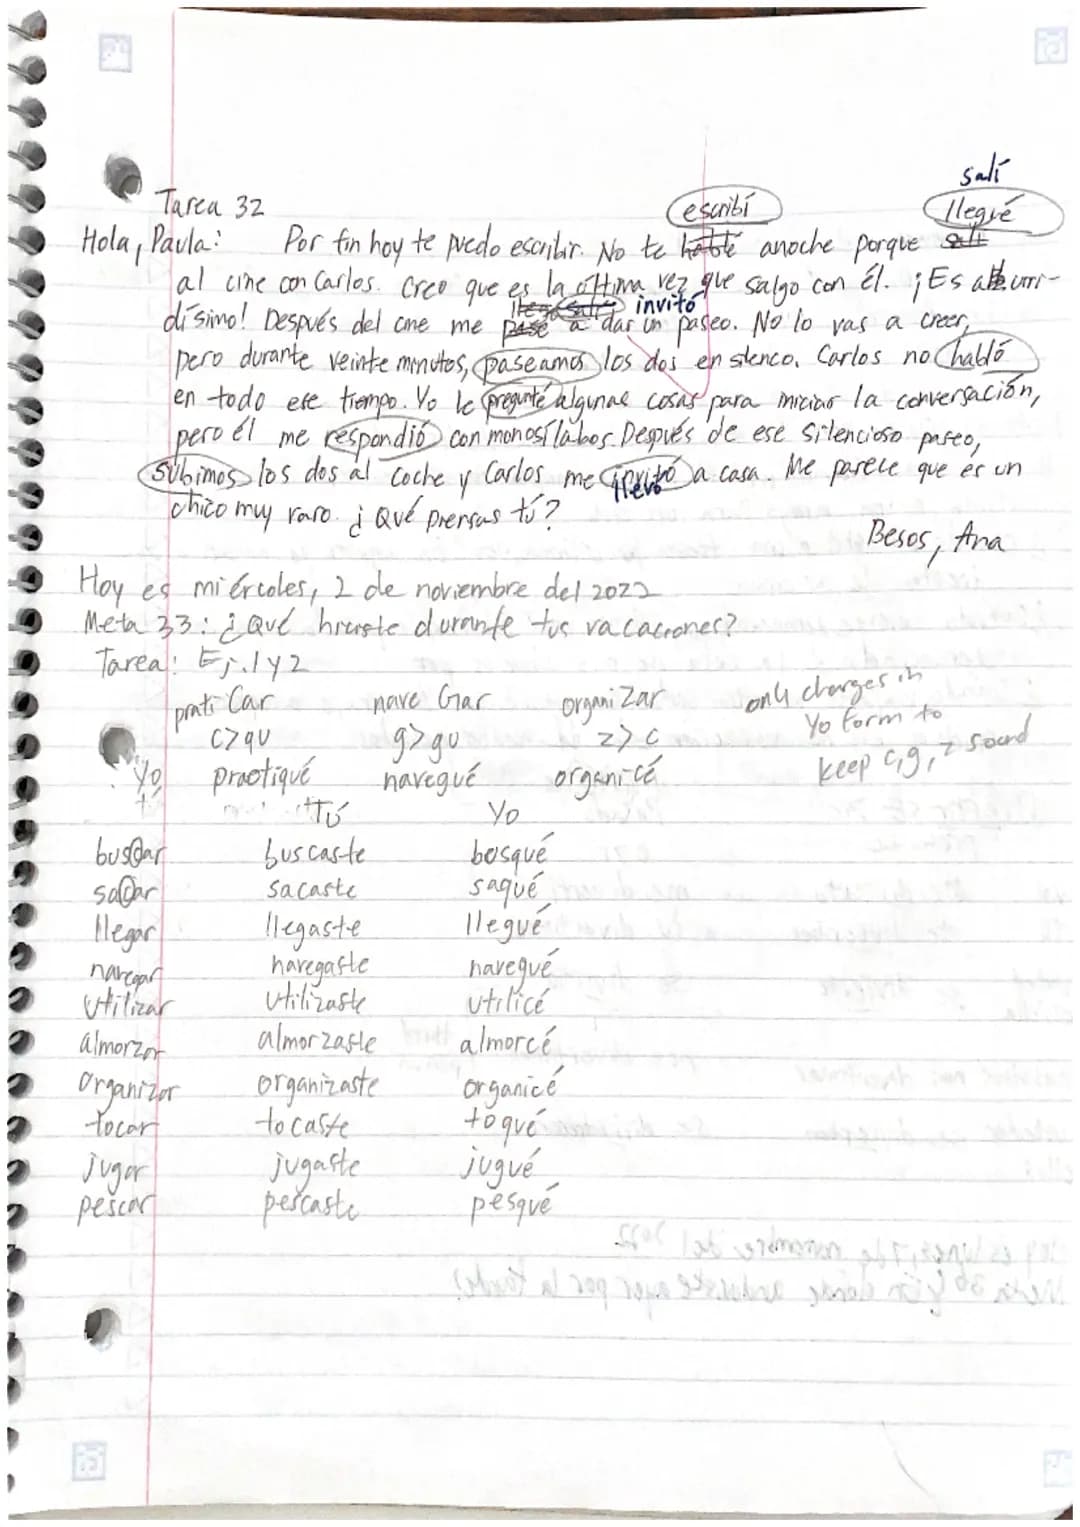 salí
Tarea 32 escribí llegué
Hola, Paula: Por fin hoy te puedo escribir. No te hablé anoche porque salí
al cine con Carlos. Creo que es la última vez que salgo con él. ¡Es aburri-
invitó
dísimo! Después del cine me pasé a dar un paseo. No lo vas a creer,
pero durante veinte minutos, paseamos los dos en slenco. Carlos no habló
en todo ese tiempo. Yo le pregunté algunas cosas para iniciar la conversación,
pero él me respondió con monosílabos. Después de ese silencioso paseo,
subimos los dos al coche y Carlos me invitó a casa. Me parece que es un
llevó
chico muy raro. ¿Qué piensas tú?
Besos, Ana
Hoy es miércoles, 2 de noviembre del 2022
Meta 33: ¿Qué hiciste durante tus vacaciones?
Tarea: Ej. 1 y 2
prati Car nave Gar organi Zar only changes in
c>qu g>gu z>c Yo form to
Yo practiqué navegué organicé keep c, g, z sound
tú
Tú Yo
buscar buscaste bosqué
sacar sacaste saqué
llegar llegaste llegué
navegar navegaste navegué
utilizar utilizaste utilicé
almorzar almorzaste almorcé
organizar organizaste organicé
tocar tocaste toqué
jugar jugaste jugué
pescar pescaste pesqué